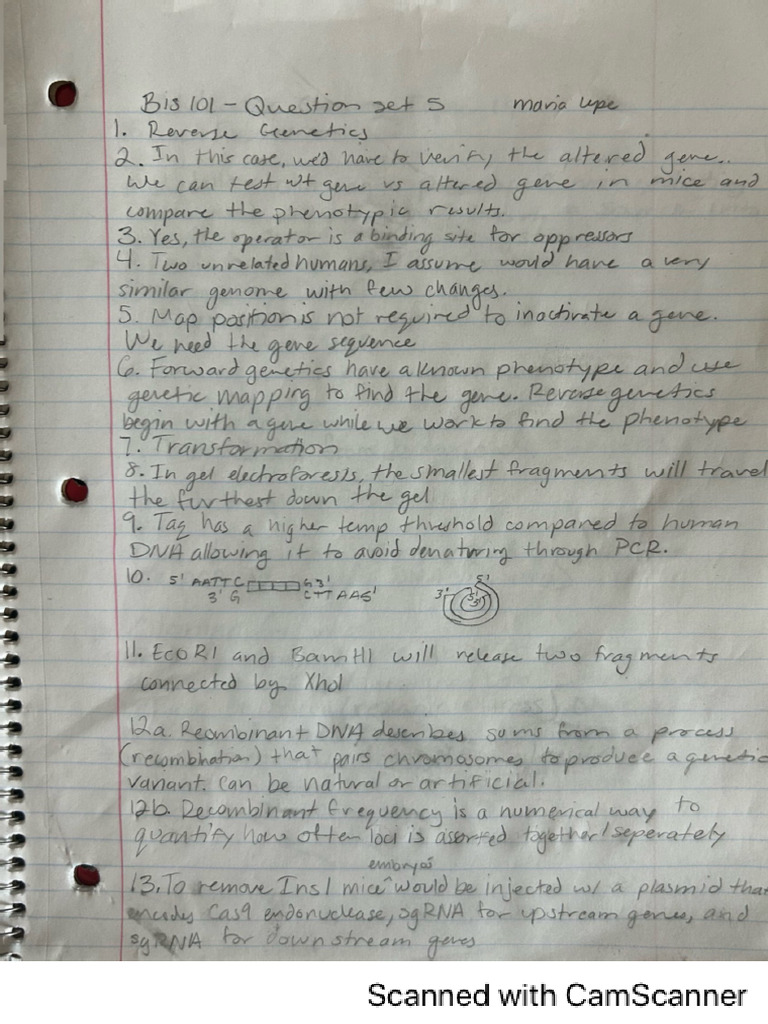 BIS 101 - Question set 5 maria lupe
1. Reverse Genetics
2. In this case, we'd have to verify the altered gene..
We can test wt gene vs altered gene in mice and
compare the phenotypic results.
3. Yes, the operator is a binding site for oppressors
4. Two unrelated humans, I assume would have a very
similar genome with few changes.
5. Map position is not required to inactivate a gene.
We need the gene sequence
6. Forward genetics have a known phenotype and use
genetic mapping to find the gene. Reverse genetics
begin with a gene while we work to find the phenotype
7. Transformation
8. In gel electroforesis, the smallest fragments will travel
the furthest down the gel
9. Taq has a higher temp threshold compared to human
DNA allowing it to avoid denaturing through PCR.
10. 5' AATTC G 3' 5'
3' G CTTAA5' 3' 5' 3'
11. EcoRI and BamHI will release two fragments
connected by XhoI
12a. Recombinant DNA describes from a process
(recombination) that pairs chromosomes to produce a genetic
variant. Can be natural or artificial.
12b. Recombinant frequency is a numerical way to
quantify how often loci is assorted together/seperately
embryos
13. To remove Ins1 mice ^ would be injected w/ a plasmid that
encodes Cas9 endonuclease, sgRNA for upstream genes, and
sgRNA for downstream genes
Scanned with CamScanner